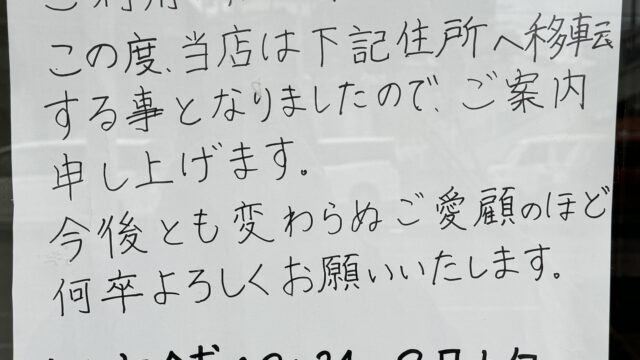 この度、当店は下記住所へ移転
する事となりましたので、ご案内
申し上げます。
今後とも変わらぬご愛顧のほど
何卒よろしくお願いいたします。